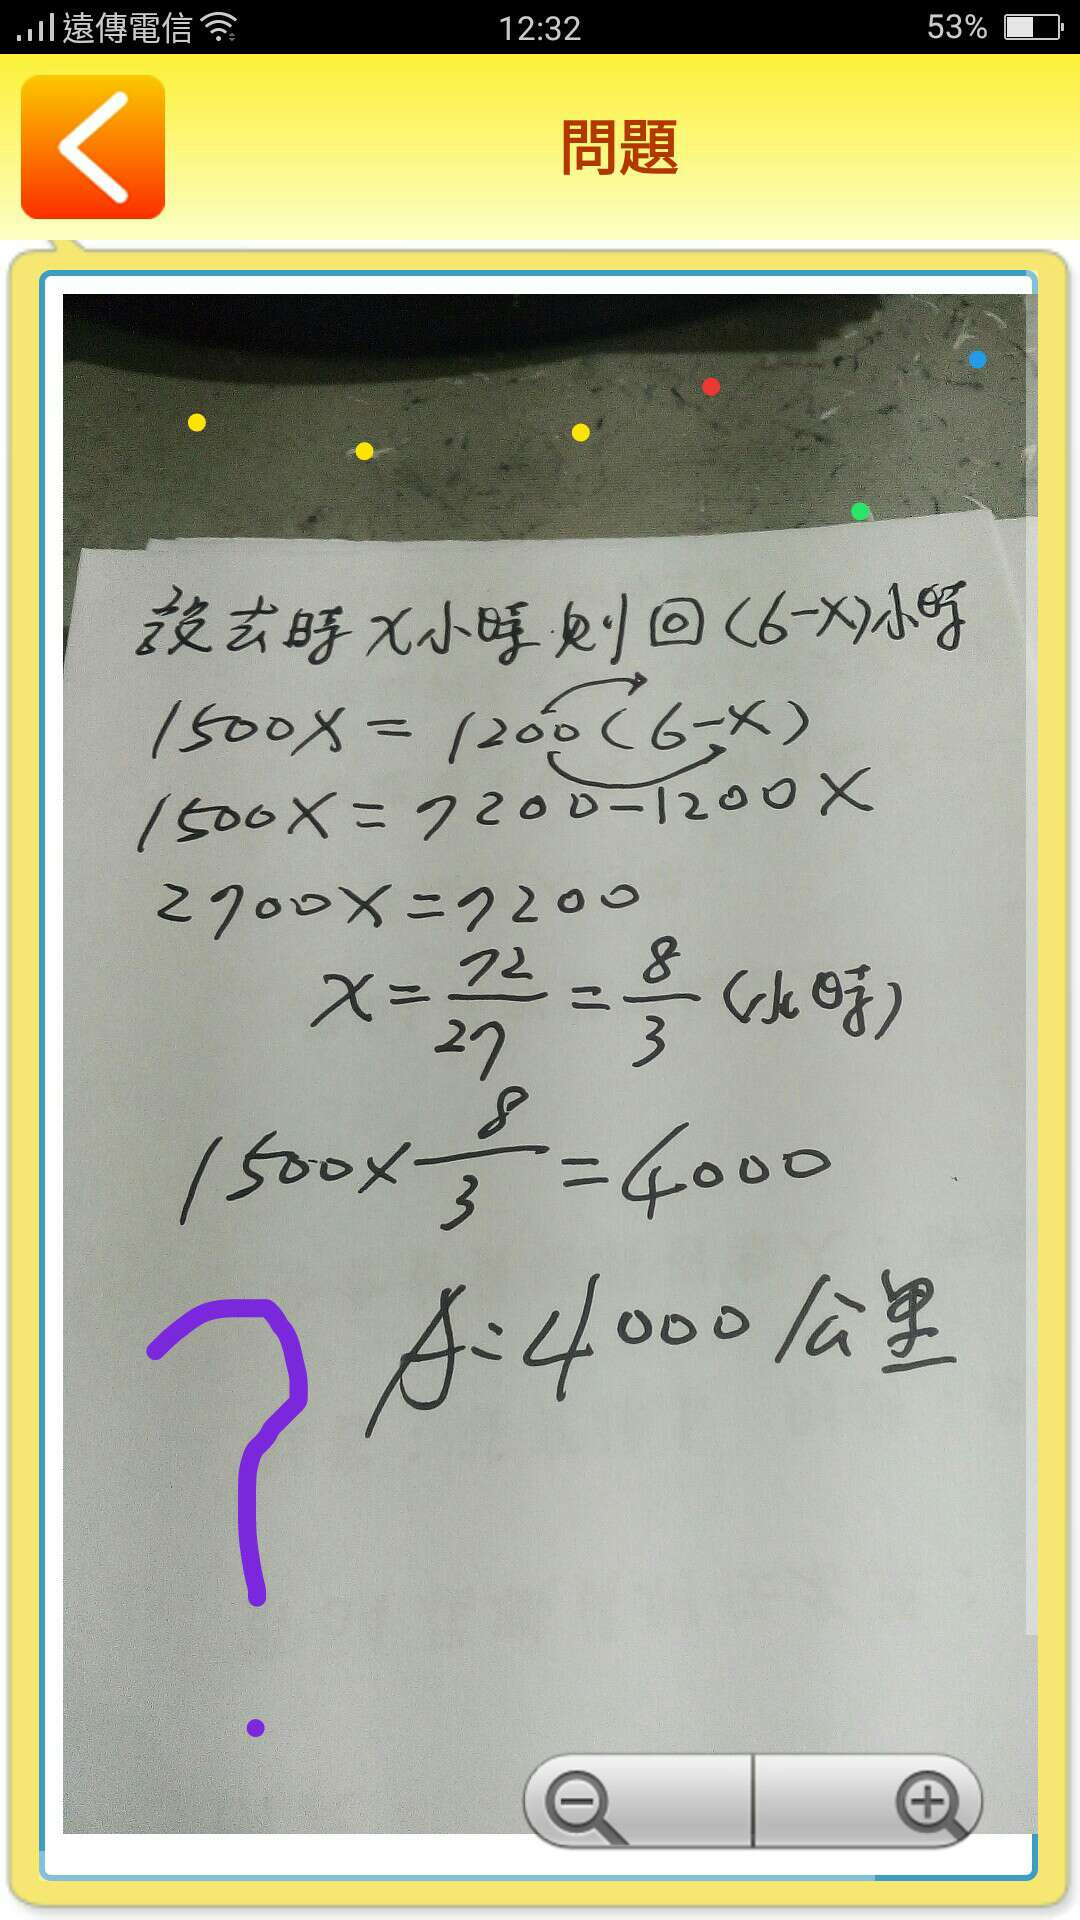 遠傳電信 12:32 53%
問題
設去時x小時則回(6-x)小時
1500x=1200(6-x)
1500x=7200-1200x
2700x=7200
x=72/27=8/3(小時)
1500×8/3=4000
A:4000公里
?